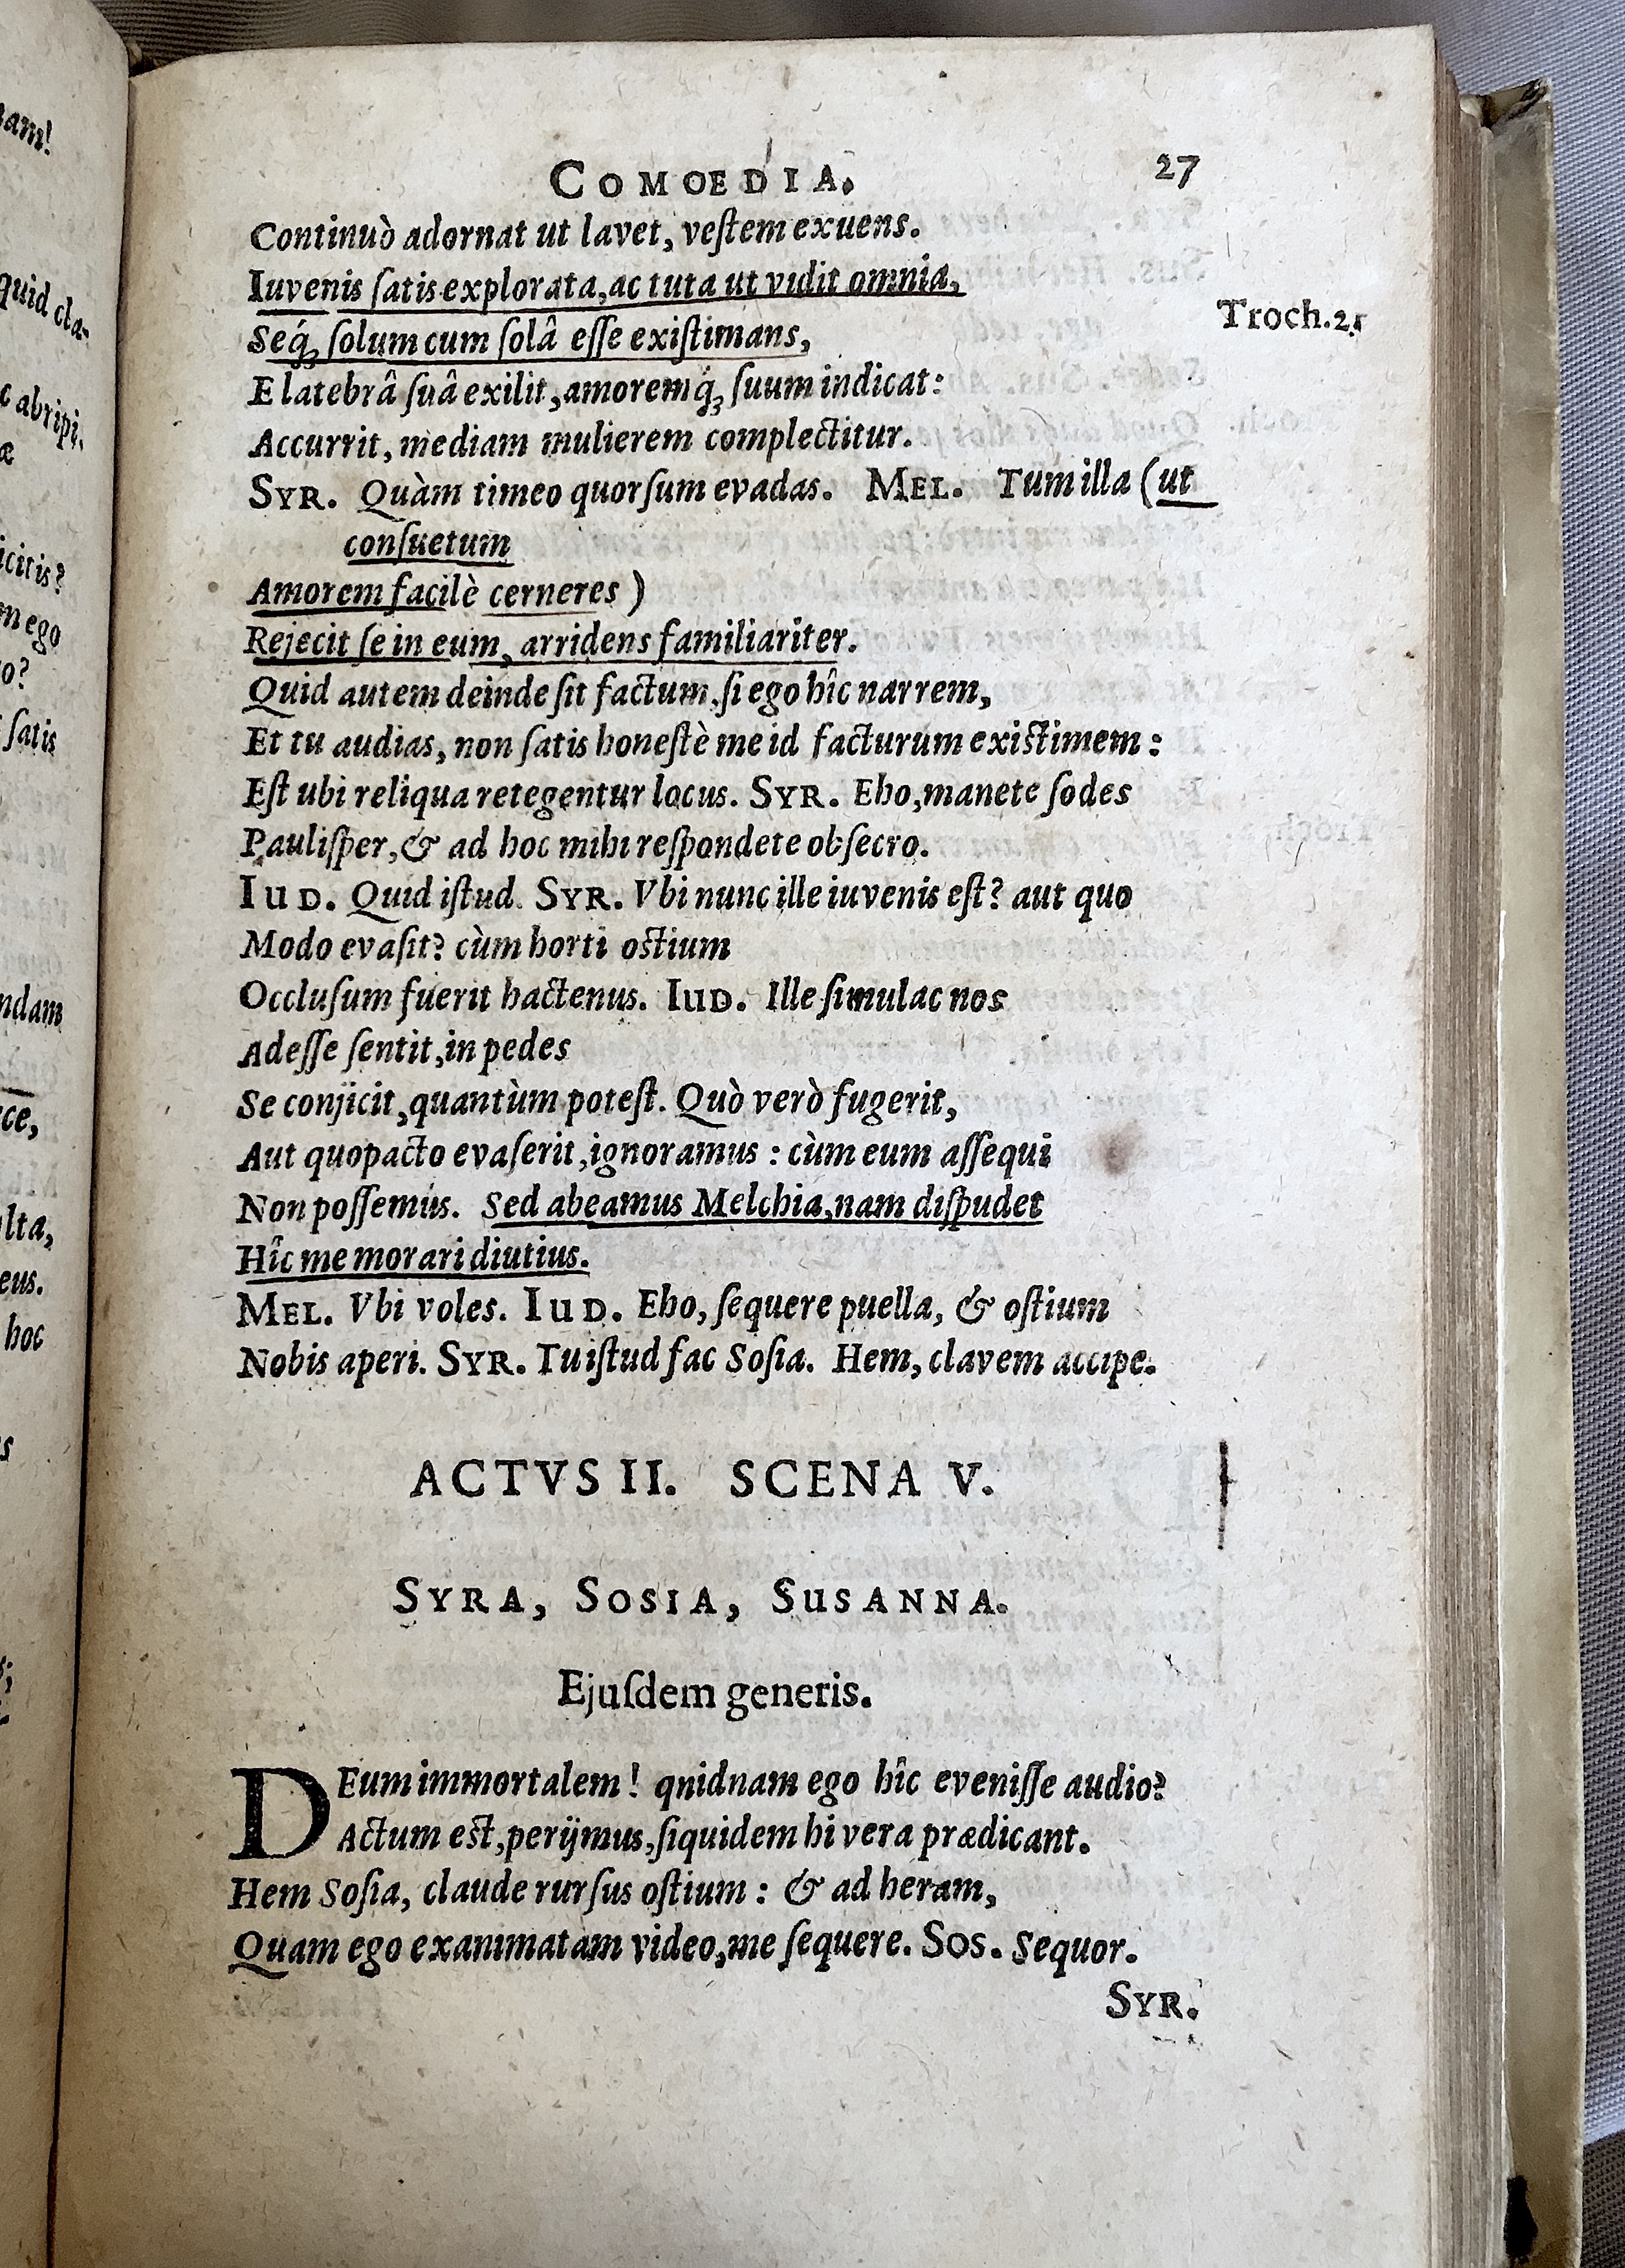 nam!
quid cla-
c abripi.
æ
icitis?
m ego
o?
satis
ndam
ce,
lta,
eus.
hoc
s
COMOEDIA. 27
Continuò adornat ut lavet, veſtem exuens.
Iuvenis ſatis explorata, ac tuta ut vidit omnia,
Seq́; ſolum cum ſolâ eſſe exiſtimans, Troch. 2.
E latebrâ ſuâ exilit, amoremq́; ſuum indicat:
Accurrit, mediam mulierem complectitur.
SYR. Quàm timeo quorſum evadas. MEL. Tum illa (ut
conſuetum
Amorem facilè cerneres )
Rejecit ſe in eum, arridens familiariter.
Quid autem deinde ſit factum, ſi ego hîc narrem,
Et tu audias, non ſatis honeſtè me id facturum existimem:
Eſt ubi reliqua retegentur locus. SYR. Eho, manete ſodes
Pauliſper, & ad hoc mihi reſpondete obſecro.
IUD. Quid iſtud. SYR. Vbi nunc ille iuvenis eſt? aut quo
Modo evaſit? cùm horti ostium
Occluſum fuerit hactenus. IUD. Ille ſimulac nos
Adeſſe ſentit, in pedes
Se conjicit, quantùm poteſt. Quò verò fugerit,
Aut quopacto evaſerit, ignoramus: cùm eum aſſequi
Non poſſemus. Sed abeamus Melchia, nam diſpudet
Hîc me morari diutius.
MEL. Vbi voles. IUD. Eho, ſequere puella, & oſtium
Nobis aperi. SYR. Tu iſtud fac Soſia. Hem, clavem accipe.
ACTVS II. SCENA V.
SYRA, SOSIA, SUSANNA.
Ejuſdem generis.
DEum immortalem! qnidnam ego hîc eveniſſe audio?
Actum est, perijmus, ſiquidem hi vera prædicant.
Hem Soſia, claude rurſus oſtium: & ad heram,
Quam ego exanimatam video, me ſequere. SOS. Sequor.
SYR.